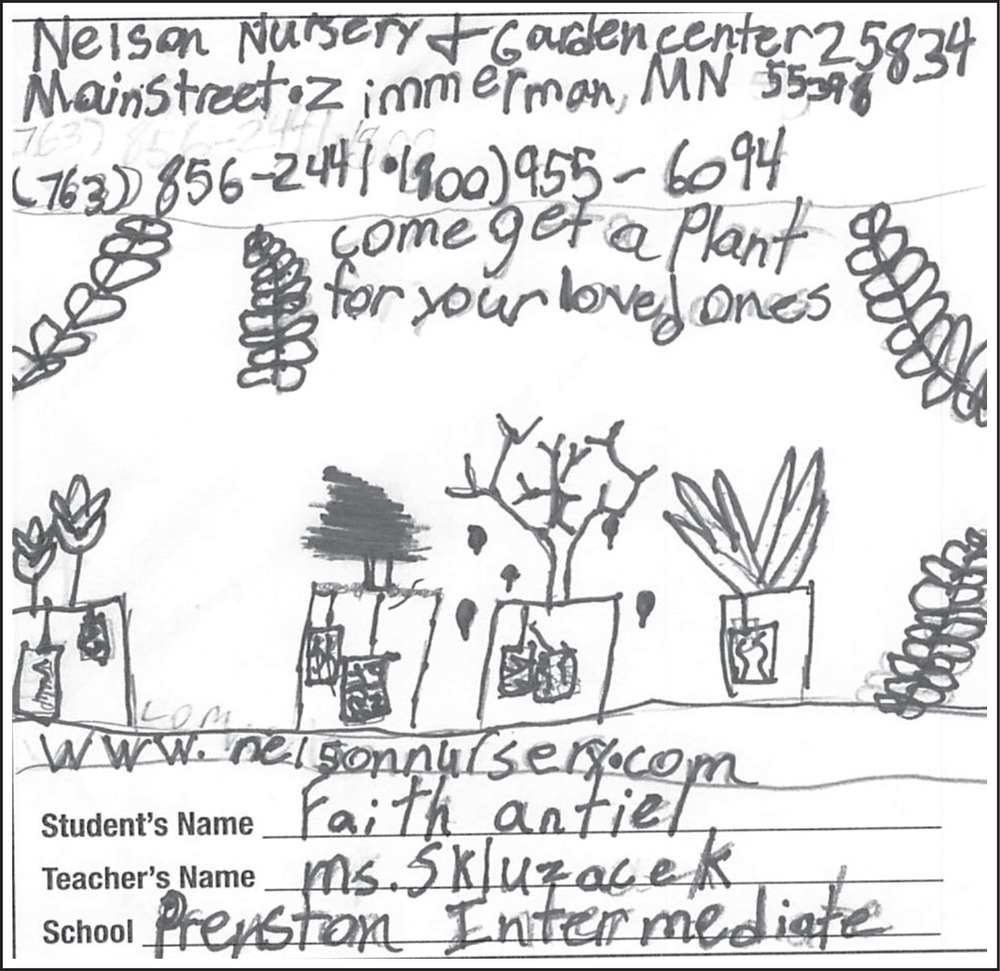 Nelson Nursery + Garden center 25834
Mainstreet • Zimmerman, MN 55398
(763) 856-2441 • (800) 955-6094
come get a Plant
for your loved ones
www.nelsonnursery.com
Student's Name Faith antiel
Teacher's Name ms. Skluzacek
School Prenston Intermediate